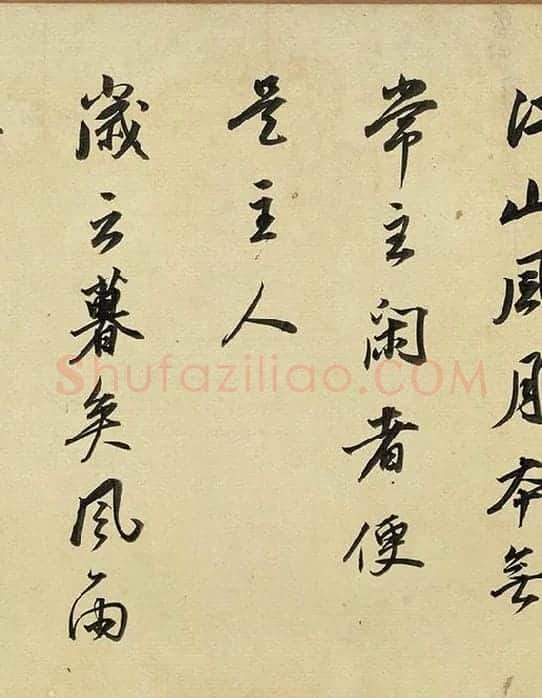 江山風月本無
常主閑者便
是主人
歲云暮矣風雨
Shufaziliao.COM